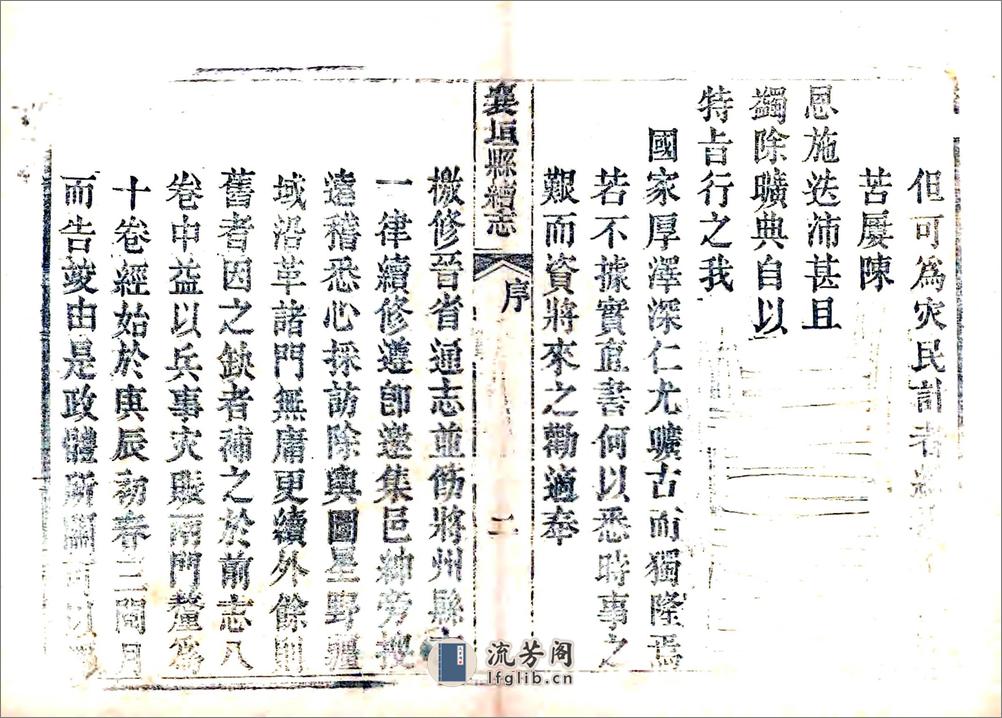 但可爲灾民計者
苦屢陳
恩施迭沛甚且
蠲除曠典自以
特㫖行之我
國家厚澤深仁尤曠古而獨隆焉
若不據實直書何以悉時事之
艱而資將來之勸適奉
襄垣縣續志 序 二
檄修晉省通志並飭將州縣
一律續修遵卽邀集邑紳旁搜
遠稽悉心採訪除輿圖星野疆
域沿革諸門無庸更續外餘則
舊者因之缺者補之於前志八
卷中益以兵事灾賑兩門釐爲
十卷經始於庚辰初春三閱月
而告竣由是政體所關可以
流芳阁
lfglib.cn